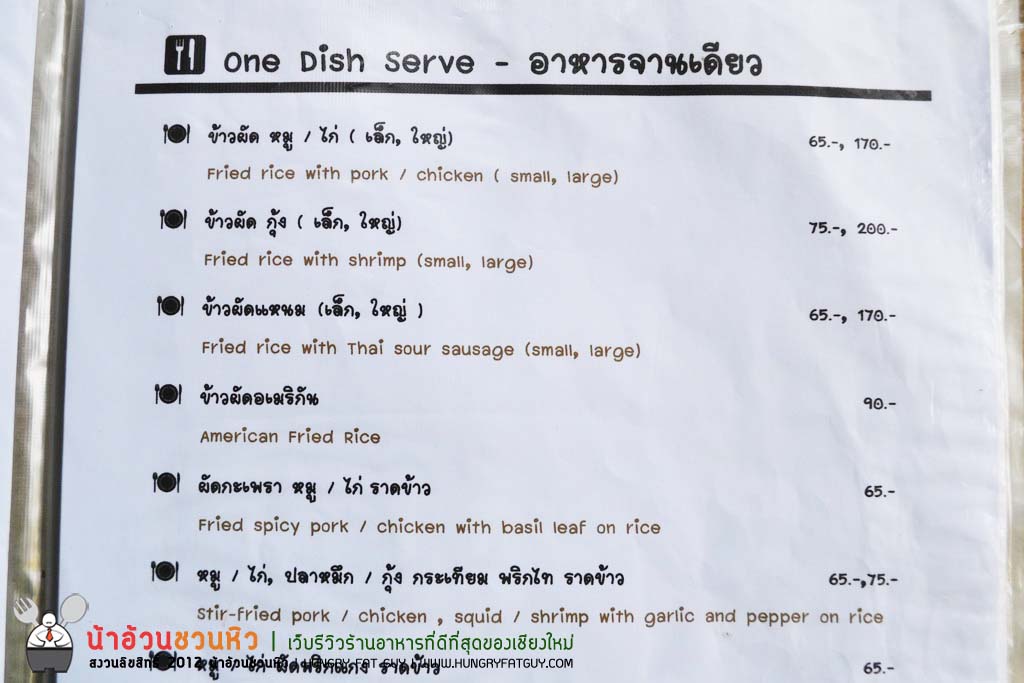 One Dish Serve - อาหารจานเดียว
ข้าวผัด หมู / ไก่ ( เล็ก, ใหญ่) 65.-, 170.-
Fried rice with pork / chicken ( small, large)
ข้าวผัด กุ้ง ( เล็ก, ใหญ่) 75.-, 200.-
Fried rice with shrimp (small, large)
ข้าวผัดแหนม (เล็ก, ใหญ่ ) 65.-, 170.-
Fried rice with Thai sour sausage (small, large)
ข้าวผัดอเมริกัน 90.-
American Fried Rice
ผัดกะเพรา หมู / ไก่ ราดข้าว 65.-
Fried spicy pork / chicken with basil leaf on rice
หมู / ไก่, ปลาหมึก / กุ้ง กระเทียม พริกไท ราดข้าว 65.-,75.-
Stir-fried pork / chicken , squid / shrimp with garlic and pepper on rice
น้าอ้วนชวนหิว | เว็บรีวิวร้านอาหารที่ดีที่สุดของเชียงใหม่
สงวนลิขสิทธิ์ 2012 น้าอ้วนชวนหิว | HUNGRY FAT GUY | WWW.HUNGRYFATGUY.COM
หมู / ไก่ ผัดพริกแกง ราดข้าว 65.-